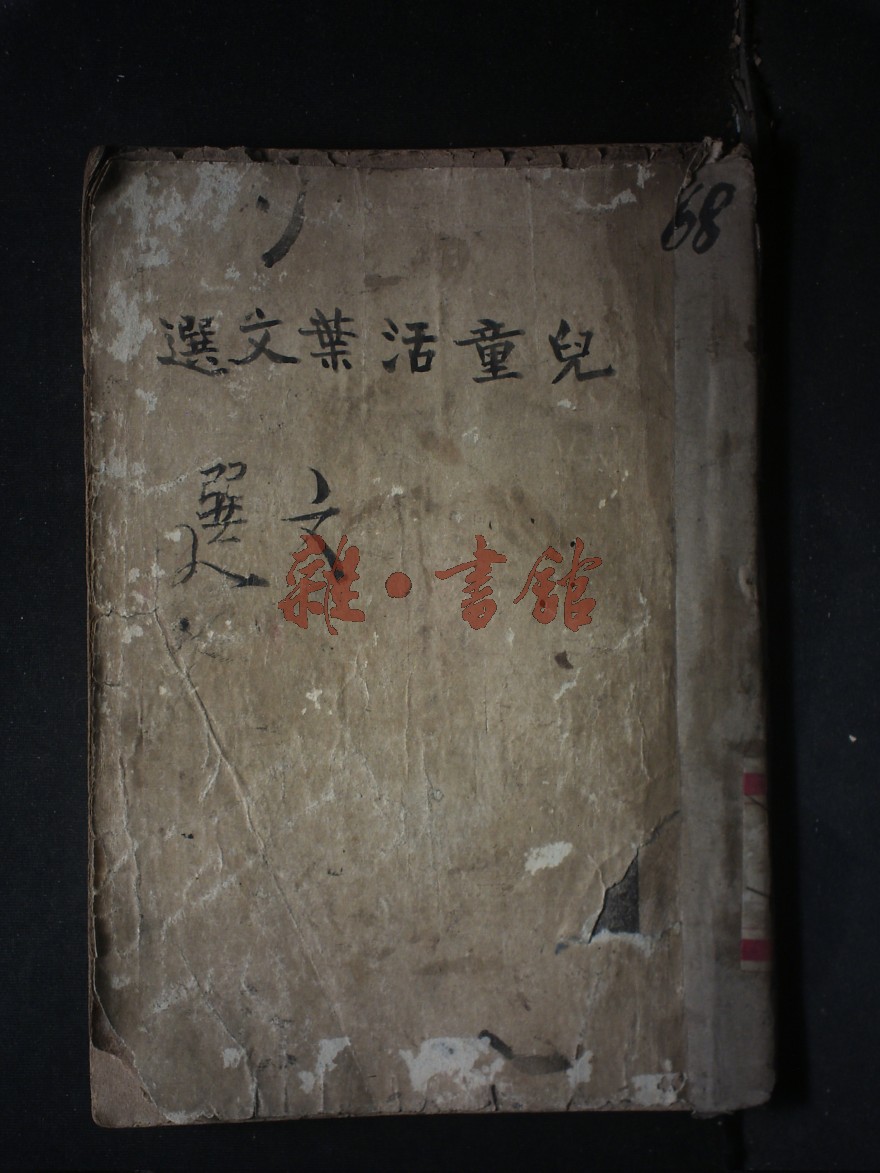 58
兒童活葉文選
文選
雜·書館